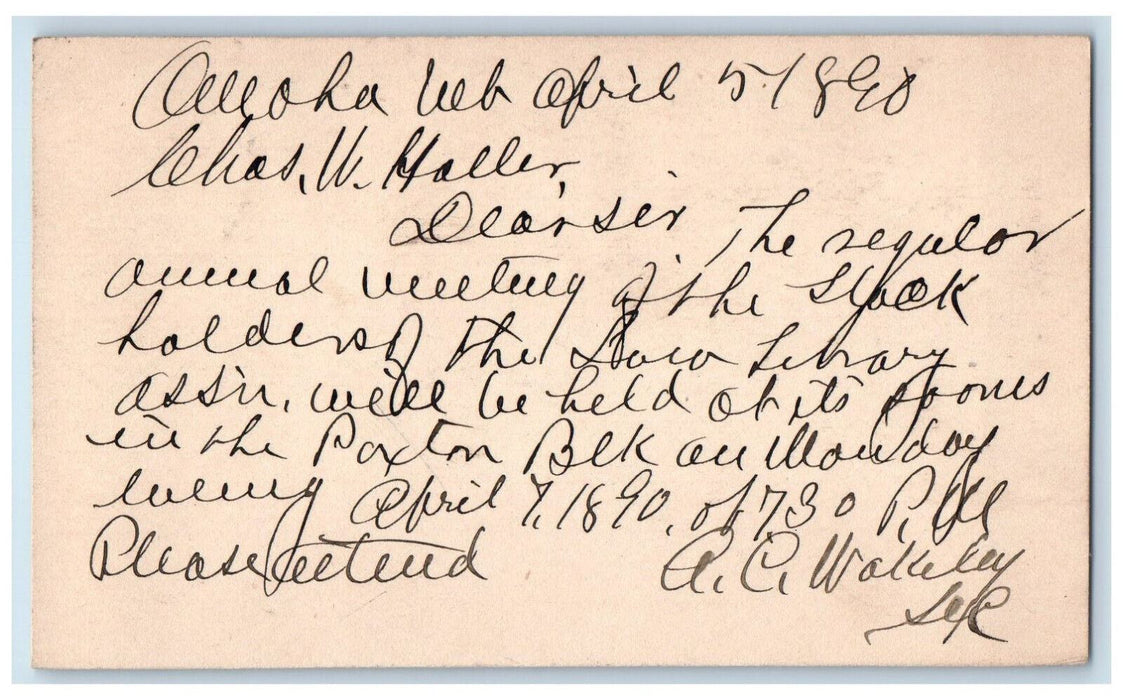 Omaha Neb April 5 / 1890
Chas. W. Haller,
Dear sir The regular
annual meeting of the Stock
holders of the Law Library
ass'n. will be held at its rooms
in the Paxton Blk on Monday
evening April 7, 1890, at 730 P.M
Please attend A. C. Wakeley
Secy